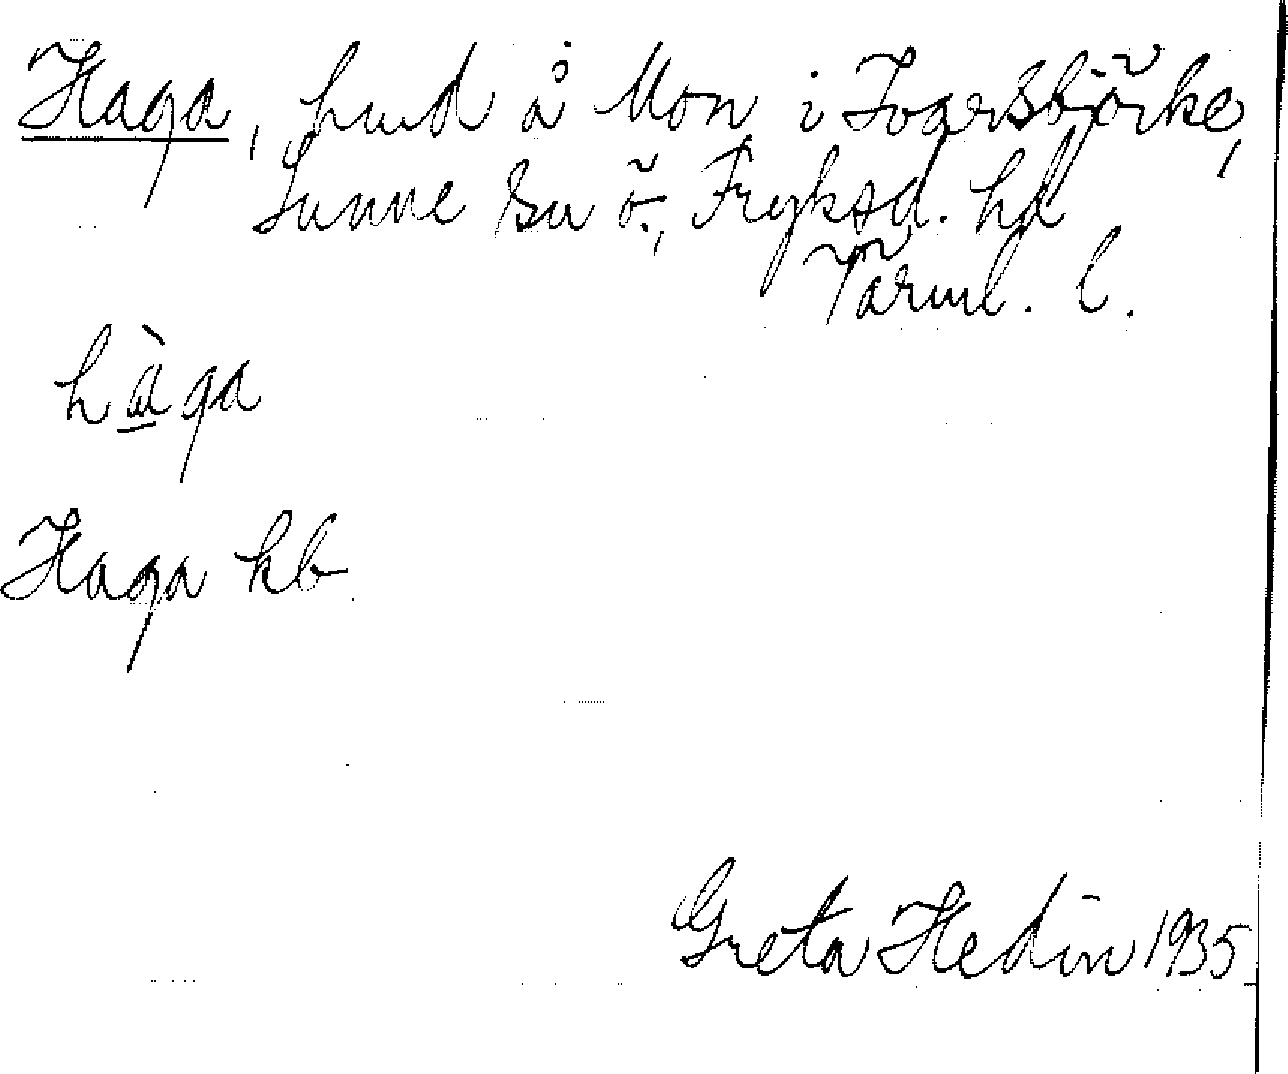 Haga, hmd å Mon i Ivarsbjörke,
Sunne sn ö., Fryksd. hd
Värml. l.
hàga
Haga kb
Greta Hedin 1935